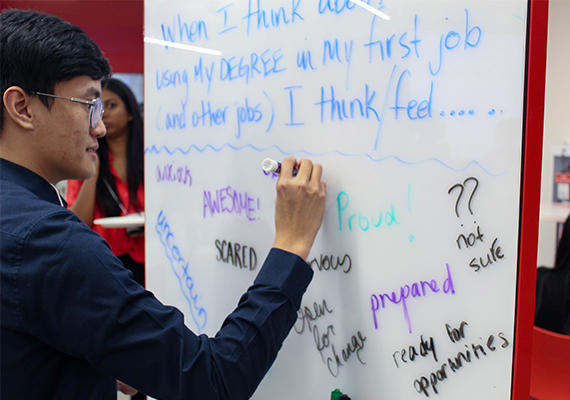 When I think about
using My DEGREE in my first job
(and other jobs) I think/feel.....
AWESOME!
Proud!
??
not
sure
uncertain
SCARED
prepared
open
for
change
ready for
opportunities